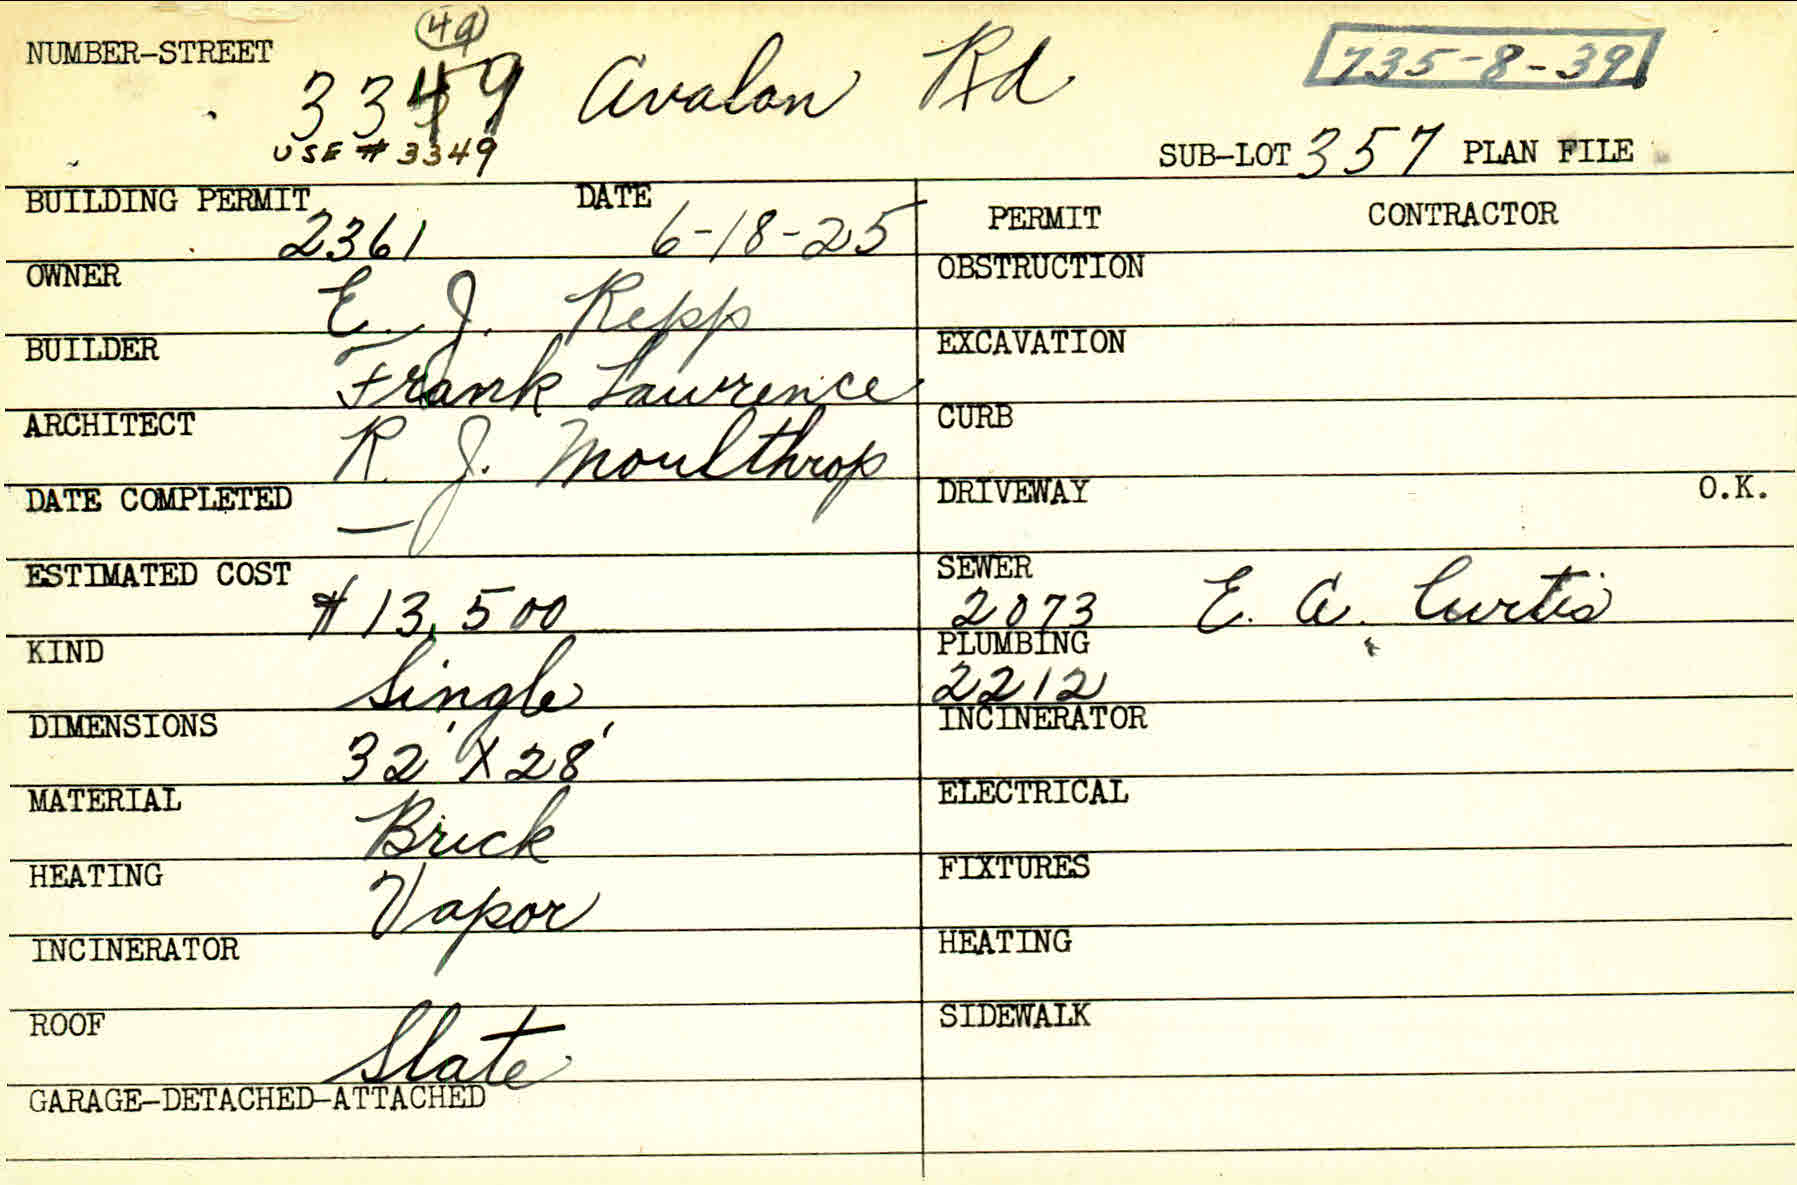 49
NUMBER-STREET 3349 Avalon Rd 735-8-39
USE # 3349
SUB-LOT 357 PLAN FILE
BUILDING PERMIT 2361 DATE 6-18-25
PERMIT CONTRACTOR
OWNER E. J. Repp
OBSTRUCTION
BUILDER Frank Lawrence
EXCAVATION
ARCHITECT R. J. Moulthrop
CURB
DATE COMPLETED —
DRIVEWAY O.K.
ESTIMATED COST $13,500
SEWER 2073 E. A. Curtis
KIND Single
PLUMBING 2212
DIMENSIONS 32' X 28'
INCINERATOR
MATERIAL Brick
ELECTRICAL
HEATING Vapor
FIXTURES
INCINERATOR
HEATING
ROOF Slate
SIDEWALK
GARAGE-DETACHED-ATTACHED